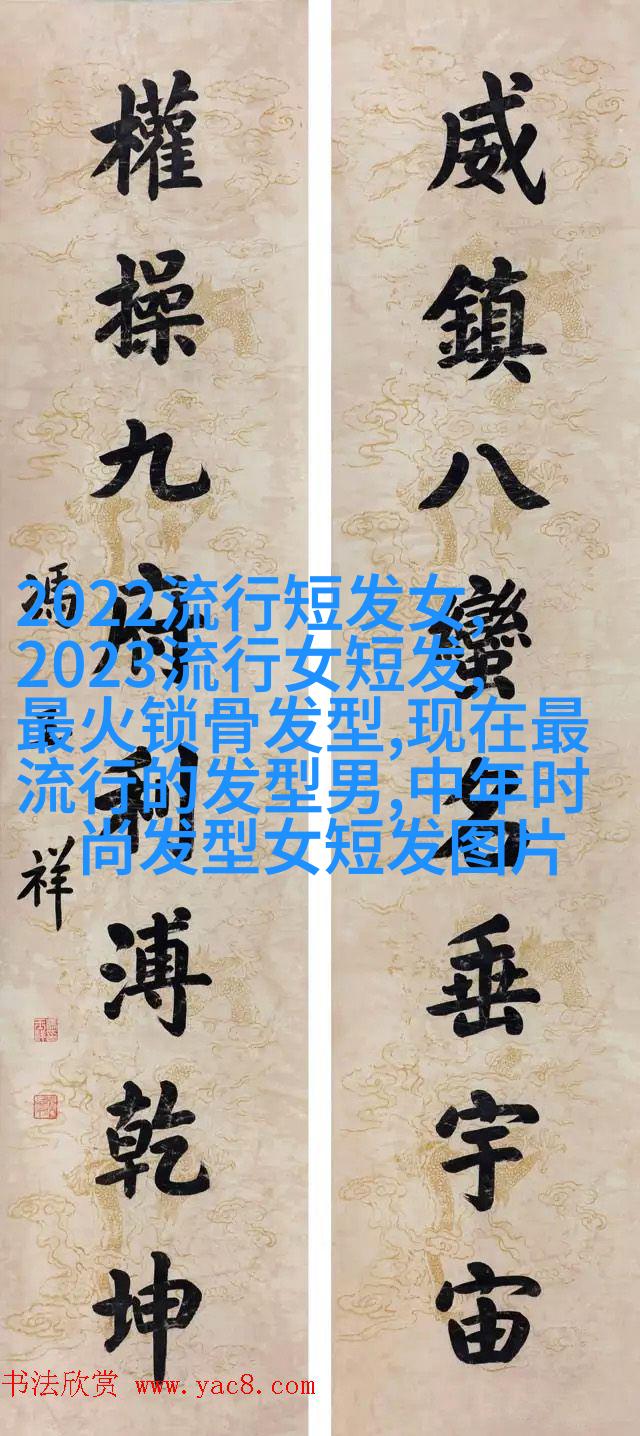 威鎮八蠻名垂宇宙
權操九府利溥乾坤
馮玉祥
2022流行短发女,
2023流行女短发,
最火锁骨发型,现在最
流行的发型男,中年时
尚发型女短发图片
书法欣赏 www.yac8.com